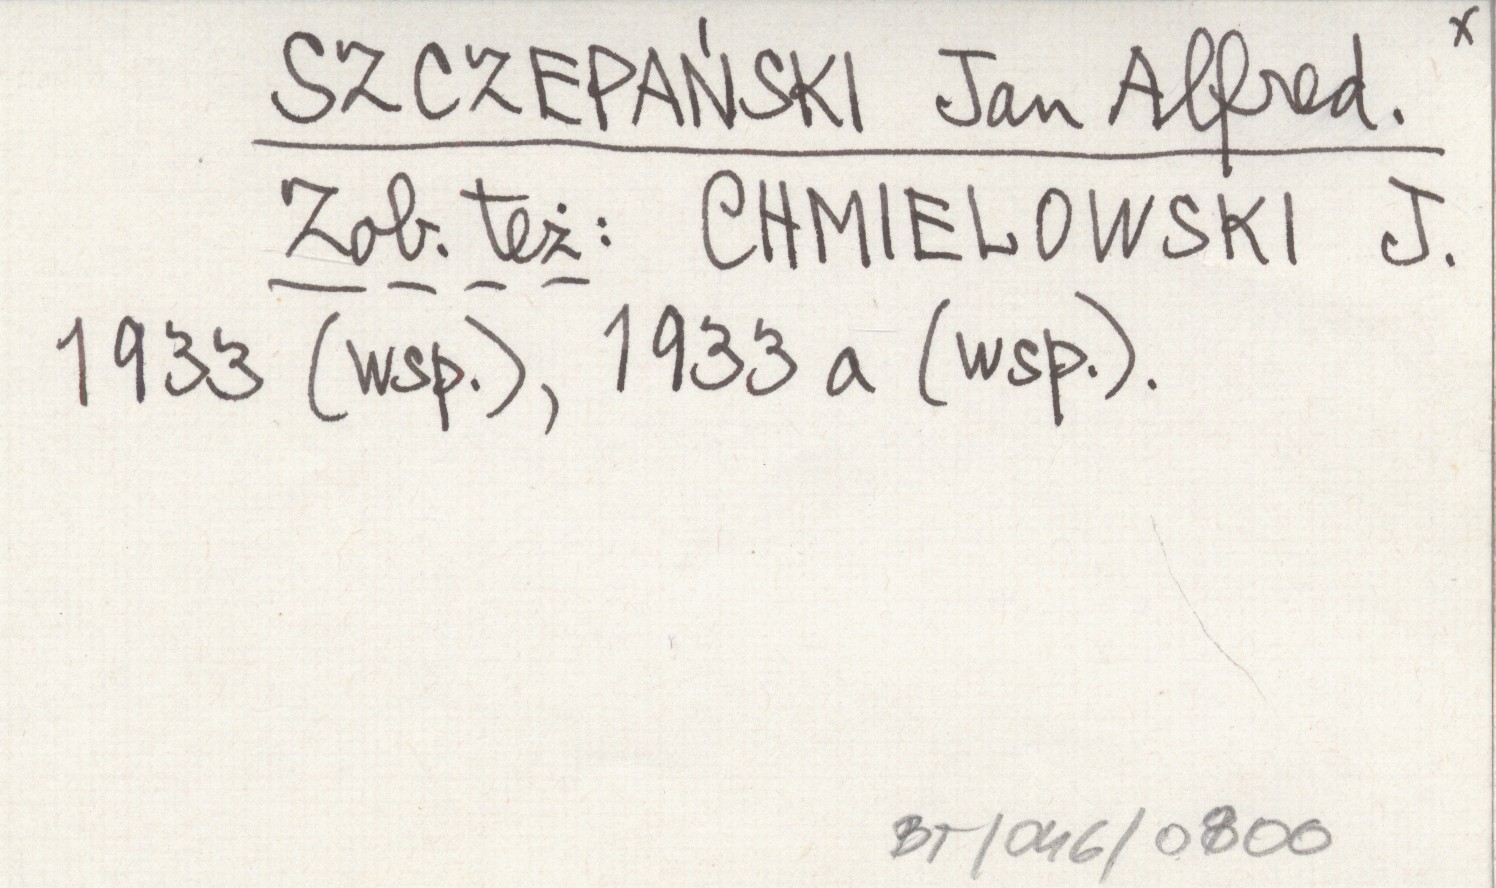 SZCZEPAŃSKI Jan Alfred. x
Zob. też: CHMIELOWSKI J.
1933 (wsp.), 1933 a (wsp.).
BT/046/0800